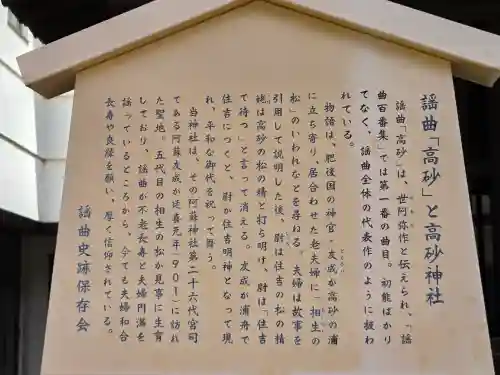 謡曲「高砂」と高砂神社
謡曲「高砂」は、世阿弥作と伝えられ、「謡
曲百番集」では第一番の曲目。初能ばかり
でなく、謡曲全体の代表作のように扱わ
れている。
物語は、肥後国の神官・友成が高砂の浦
に立ち寄り、居合わせた老夫婦に「相生の
松」のいわれなどを尋ねる。夫婦は故事を
引用して説明した後、尉は住吉の松の精
姥は高砂の松の精と打ち明け、尉は「住吉
で待つ」と言って消える。友成が浦舟で
住吉につくと、尉が住吉明神となって現
れ、平和な御代を祝って舞う。
当神社は、その阿蘇神社第二十六代宮司
である阿蘇友成が延喜元年(901)に訪れ
た聖地。五代目の相生の松が見事に生育
しており、謡曲が不老長寿と夫婦円満を
謡っているところから、今でも夫婦和合
長寿や良縁を願い、厚く信仰されている。
謡曲史跡保存会